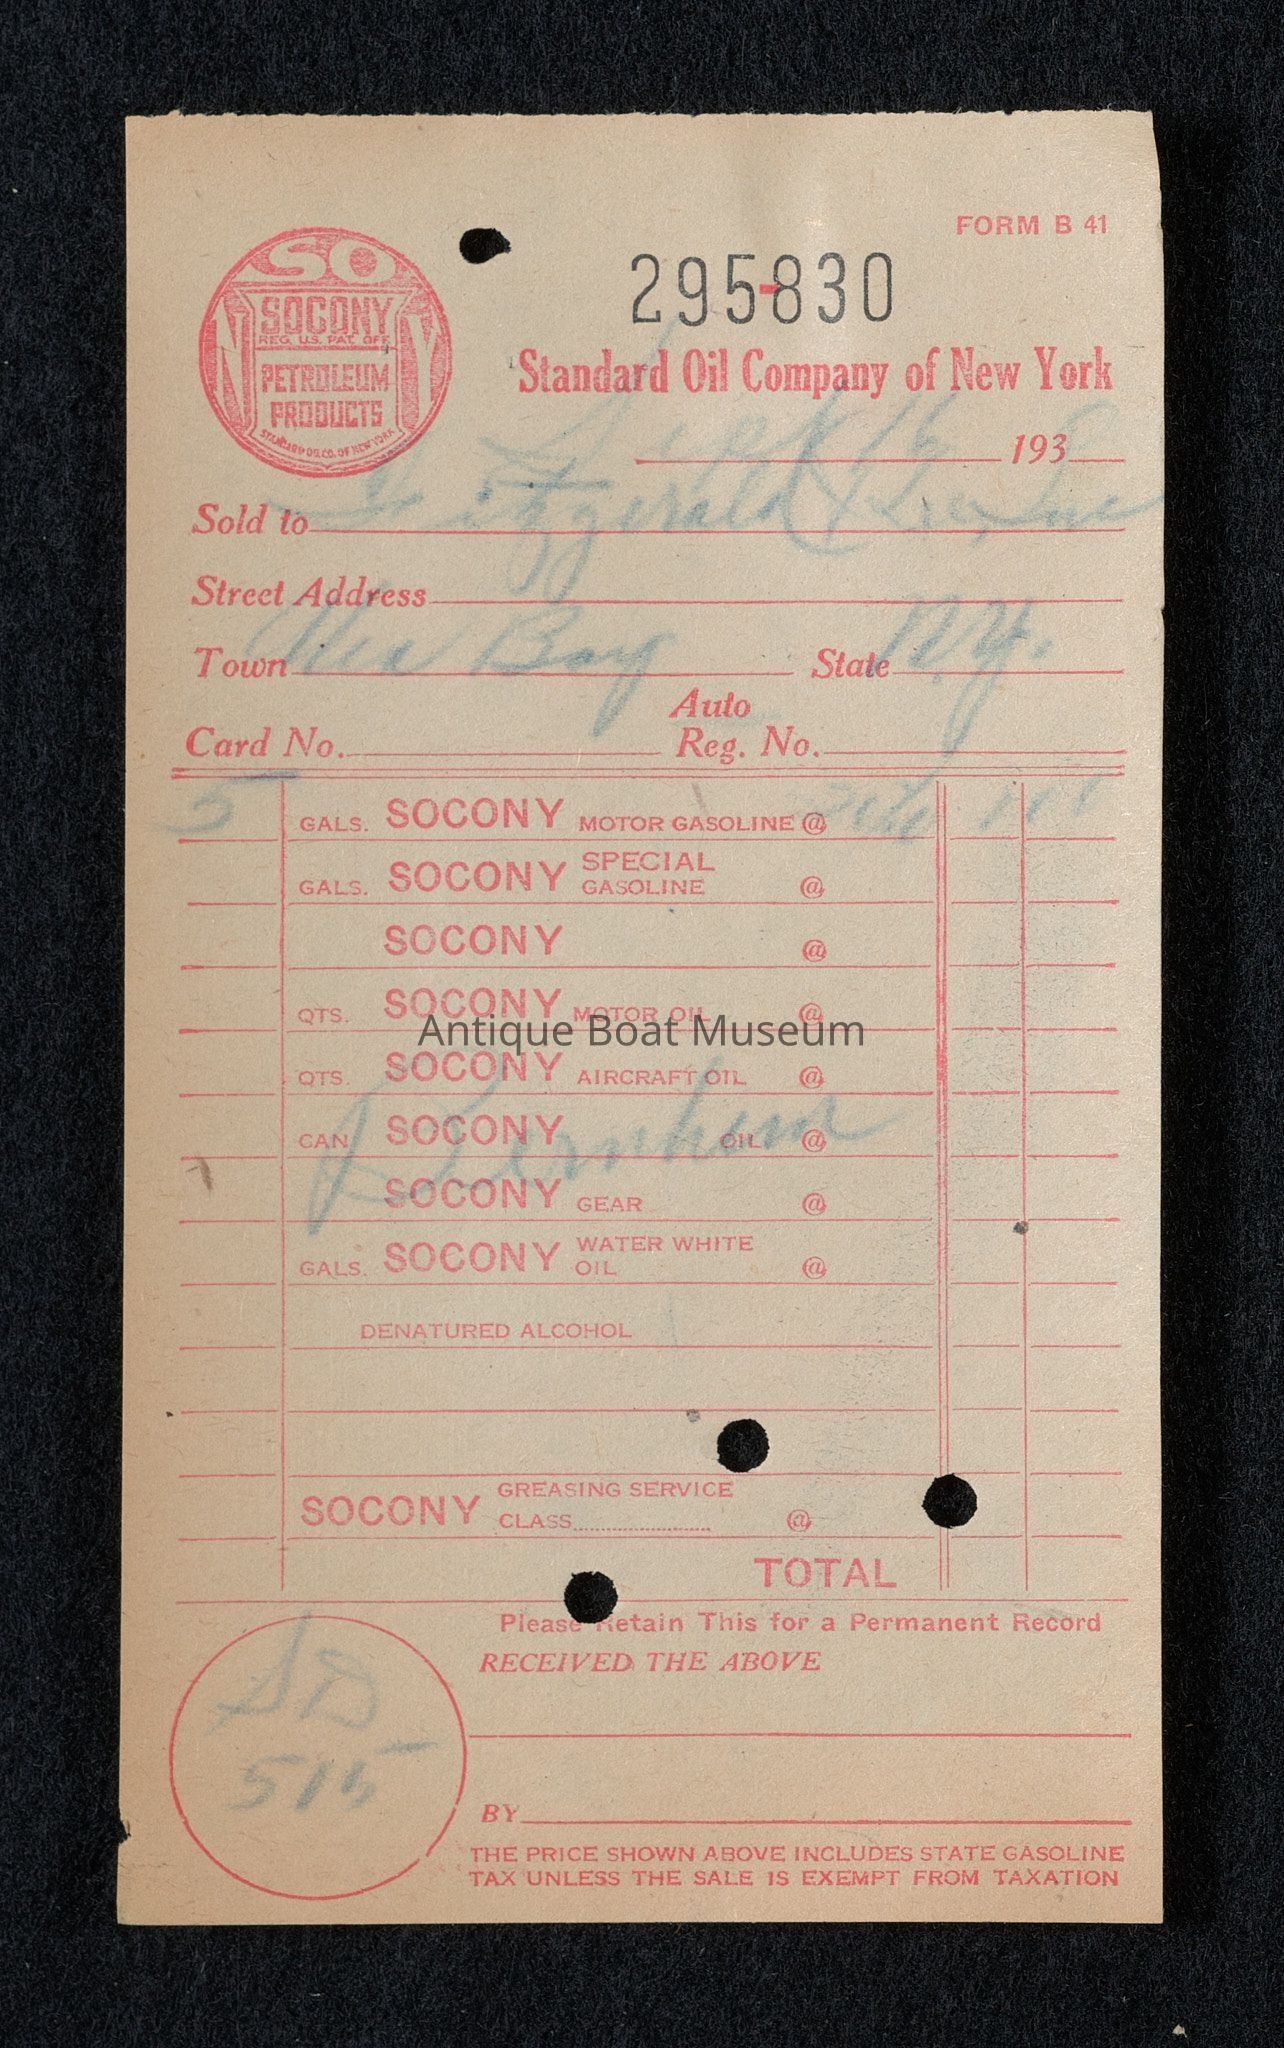 FORM B 41
SO
SOCONY
REG. U.S. PAT. OFF.
PETROLEUM
PRODUCTS
STANDARD OIL CO. OF NEW YORK
295-830
Standard Oil Company of New York
Sept 16 193
Sold to Fitzgerald & Lee, Inc
Street Address
Town Alex Bay State N.Y.
Auto
Card No. Reg. No.
5 GALS. SOCONY MOTOR GASOLINE @
GALS. SOCONY SPECIAL GASOLINE @
SOCONY @
QTS. SOCONY MOTOR OIL @
Antique Boat Museum
QTS. SOCONY AIRCRAFT OIL @
CAN SOCONY OIL @
SOCONY GEAR @
GALS. SOCONY WATER WHITE OIL @
DENATURED ALCOHOL
SOCONY GREASING SERVICE
CLASS @
TOTAL
Please Retain This for a Permanent Record
RECEIVED THE ABOVE
515
BY
THE PRICE SHOWN ABOVE INCLUDES STATE GASOLINE
TAX UNLESS THE SALE IS EXEMPT FROM TAXATION